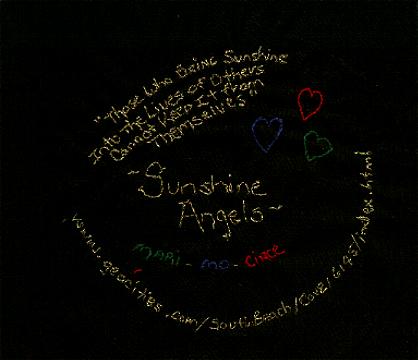 "Those Who Bring Sunshine
Into The Lives of Others
Cannot Keep It From
Themselves"
~Sunshine
Angels~
MARI - MO - CIRCE
www.geocities.com/SouthBeach/Cove/6145/index.html